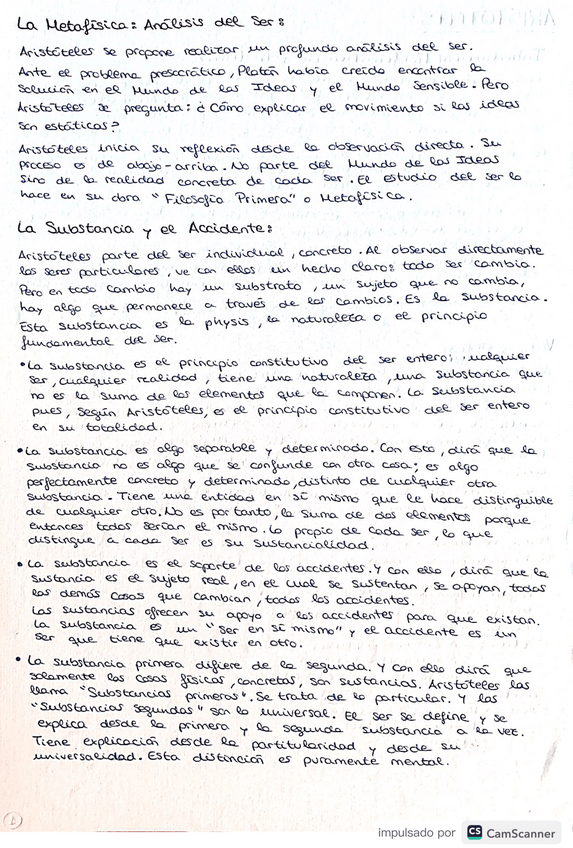 La Metafísica: Análisis del Ser:
Aristóteles se propone realizar un profundo análisis del ser.
Ante el problema presocrático, Platón había creído encontrar la
solución en el Mundo de las Ideas y el Mundo Sensible. Pero
Aristóteles se pregunta: ¿Cómo explicar el movimiento si las ideas
son estáticas?
Aristóteles inicia su reflexión desde la observación directa. Su
proceso es de abajo-arriba. No parte del Mundo de las Ideas
sino de la realidad concreta de cada ser. El estudio del ser lo
hace en su obra "Filosofía Primera" o Metafísica.
La Substancia y el Accidente:
Aristóteles parte del ser individual, concreto. Al observar directamente
los seres particulares, ve con ellos un hecho claro: todo ser cambia.
Pero en todo cambio hay un substrato, un sujeto que no cambia,
hay algo que permanece a través de los cambios. Es la Substancia.
Esta substancia es la physis, la naturaleza o el principio
fundamental del ser.
• La substancia es el principio constitutivo del ser entero: cualquier
ser, cualquier realidad, tiene una naturaleza, una substancia que
no es la suma de los elementos que la componen. La substancia
pues, según Aristóteles, es el principio constitutivo del ser entero
en su totalidad.
• La substancia es algo separable y determinado. Con esto, dirá que la
substancia no es algo que se confunde con otra cosa; es algo
perfectamente concreto y determinado, distinto de cualquier otra
substancia. Tiene una entidad en sí mismo que le hace distinguible
de cualquier otro. No es por tanto, la suma de dos elementos porque
entonces todos serían el mismo. Lo propio de cada ser, lo que
distingue a cada ser es su sustancialidad.
• La substancia es el soporte de los accidentes. Y con ello, dirá que la
sustancia es el sujeto real, en el cual se sustentan, se apoyan, todas
las demás cosas que cambian, todos los accidentes.
Las sustancias ofrecen su apoyo a los accidentes para que existan.
La substancia es un "ser en sí mismo" y el accidente es un
ser que tiene que existir en otro.
• La substancia primera difiere de la segunda. Y con ello dirá que
solamente las cosas físicas, concretas, son sustancias. Aristóteles las
llama "Substancias primeras". Se trata de lo particular. Y las
"Substancias segundas" son lo universal. El ser se define y se
explica desde la primera y la segunda substancia a la vez.
Tiene explicación desde la partitularidad y desde su
universalidad. Esta distinción es puramente mental.
impulsado por CS CamScanner